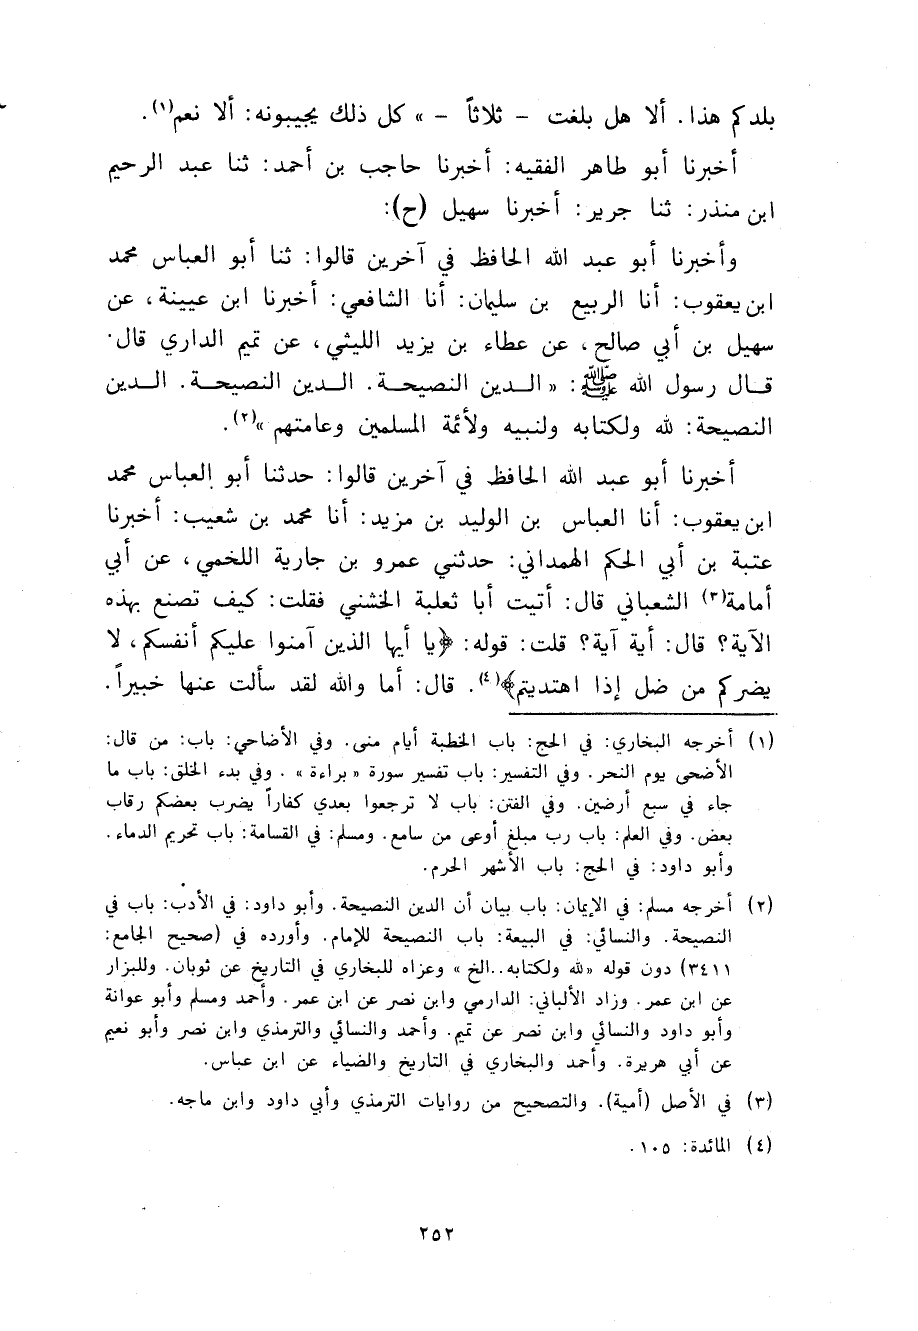 بلدكم هذا. ألا هل بلغت - ثلاثاً - » كل ذلك يجيبونه: ألا نعم(١).
أخبرنا أبو طاهر الفقيه: أخبرنا حاجب بن أحمد: ثنا عبد الرحيم
ابن منذر: ثنا جرير: أخبرنا سهيل (ح):
وأخبرنا أبو عبد الله الحافظ في آخرين قالوا: ثنا أبو العباس محمد
ابن يعقوب: أنا الربيع بن سليمان: أنا الشافعي: أخبرنا ابن عيينة، عن
سهيل بن أبي صالح، عن عطاء بن يزيد الليثي، عن تميم الداري قال.
قـال رسول الله ﷺ: « الـدين النصيحـة. الـدين النصيحـة. الـدين
النصيحة: لله ولكتابه ولنبيه ولأئمة المسلمين وعامتهم »(٢).
أخبرنا أبو عبد الله الحافظ في آخرين قالوا: حدثنا أبو العباس محمد
ابن يعقوب: أنا العباس بن الوليد بن مزيد: أنا محمد بن شعيب: أخبرنا
عتبة بن أبي الحكم الهمداني: حدثني عمرو بن جارية اللخمي، عن أبي
أمامة(٣) الشعباني قال: أتيت أبا ثعلبة الخشني فقلت: كيف تصنع بهذه
الآية؟ قال: أية آية؟ قلت: قوله: ﴿يا أيها الذين آمنوا عليكم أنفسكم، لا
يضركم من ضل إذا اهتديتم﴾(٤). قال: أما والله لقد سألت عنها خبيراً.
(١) أخرجه البخاري: في الحج: باب الخطبة أيام منى. وفي الأضاحي: باب: من قال:
الأضحى يوم النحر. وفي التفسير: باب تفسير سورة « براءة » . وفي بدء الخلق: باب ما
جاء في سبع أرضين. وفي الفتن: باب لا ترجعوا بعدي كفاراً يضرب بعضكم رقاب
بعض. وفي العلم: باب رب مبلغ أوعى من سامع. ومسلم: في القسامة: باب تحريم الدماء.
وأبو داود: في الحج: باب الأشهر الحرم.
(٢) أخرجه مسلم: في الإيمان: باب بيان أن الدين النصيحة. وأبو داود: في الأدب: باب في
النصيحة. والنسائي: في البيعة: باب النصيحة للإمام. وأورده في (صحيح الجامع:
٣٤١١) دون قوله «لله ولكتابه..الخ » وعزاه للبخاري في التاريخ عن ثوبان. وللبزار
عن ابن عمر. وزاد الألباني: الدارمي وابن نصر عن ابن عمر. وأحمد ومسلم وأبو عوانة
وأبو داود والنسائي وابن نصر عن تميم. وأحمد والنسائي والترمذي وابن نصر وأبو نعيم
عن أبي هريرة. وأحمد والبخاري في التاريخ والضياء عن ابن عباس.
(٣) في الأصل (أمية). والتصحيح من روايات الترمذي وأبي داود وابن ماجه.
(٤) المائدة: ١٠٥.
٢٥٢